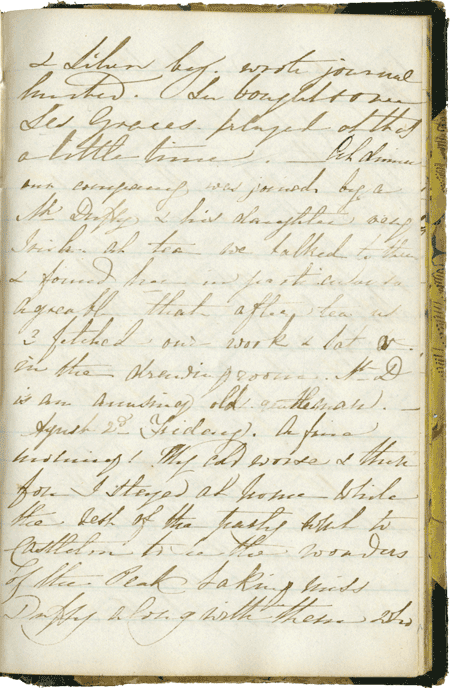 & Silver beg. wrote journal
hunted. In bought over
Les Graces played at that
a little time. — At dinner
our company was joined by a
Mr Duffy & his daughter very
Irish at tea we talked to them
& found her in particular so
agreeable that after tea us
3 fetched our work & sat
in the drawing room. Mr D
is an amusing old gentleman. —
August 2d Friday. A fine
morning! My cold worse & there
fore I stayed at home while
the rest of the party went to
Castleton to see the wonders
of the Peak taking miss
Duffy along with them who